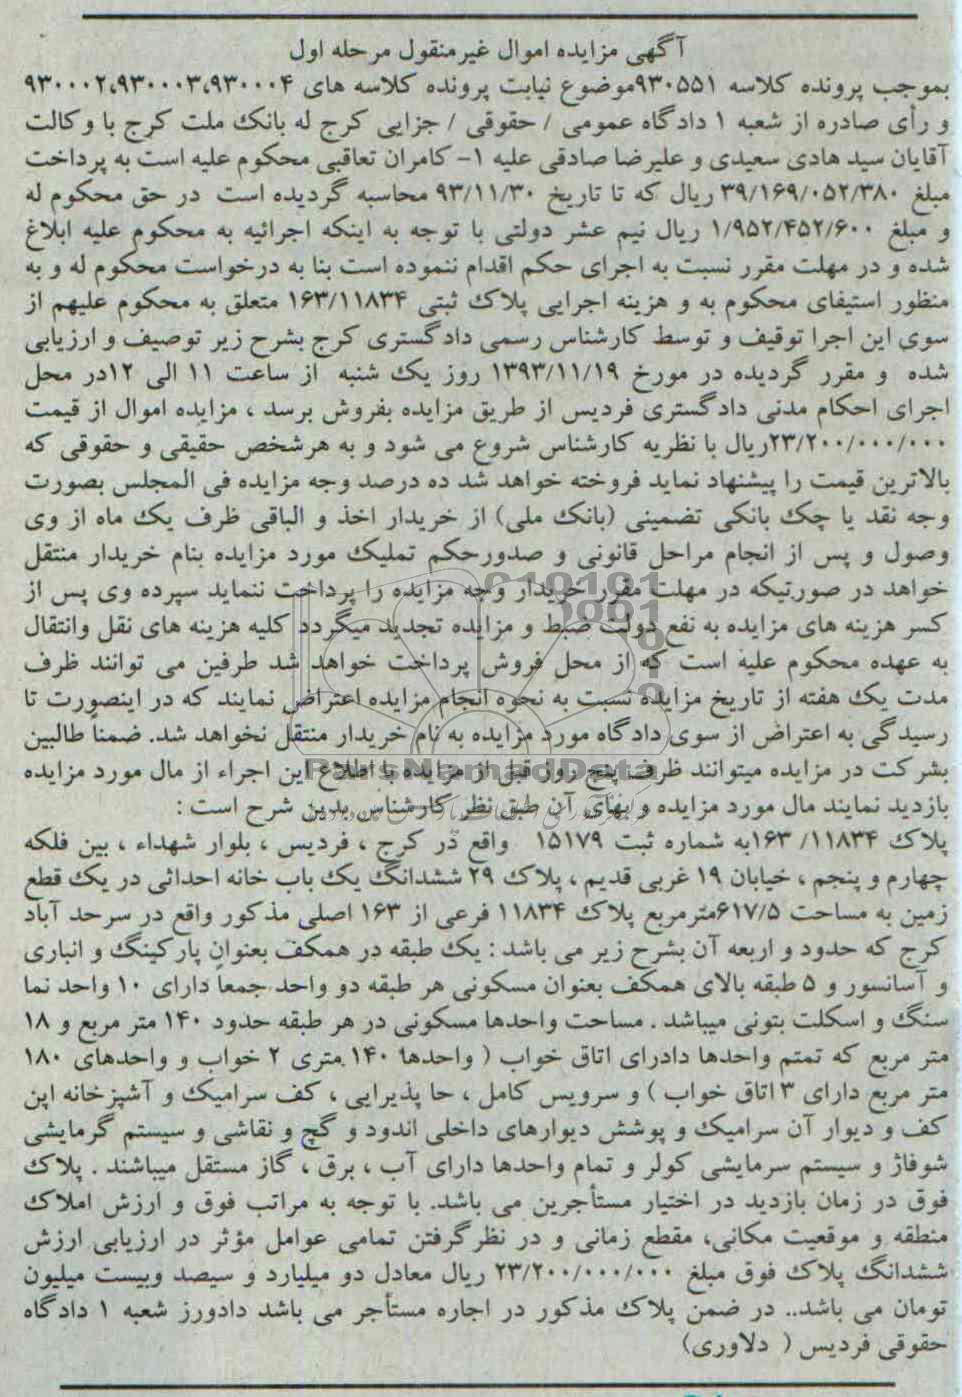 آگهی مزایده اموال غیرمنقول مرحله اول
بموجب پرونده کلاسه ۹۳۰۵۵۱موضوع نیابت پرونده کلاسه های ۹۳۰۰۰۲،۹۳۰۰۰۳،۹۳۰۰۰۴
و رأی صادره از شعبه ۱ دادگاه عمومی / حقوقی / جزایی کرج له بانک ملت کرج با وکالت
آقایان سید هادی سعیدی و علیرضا صادقی علیه ۱- کامران تعاقبی محکوم علیه است به پرداخت
مبلغ ۳۹/۱۶۹/۰۵۲/۳۸۰ ریال که تا تاریخ ۹۳/۱۱/۳۰ محاسبه گردیده است در حق محکوم له
و مبلغ ۱/۹۵۲/۴۵۲/۶۰۰ ریال نیم عشر دولتی با توجه به اینکه اجرائیه به محکوم علیه ابلاغ
شده و در مهلت مقرر نسبت به اجرای حکم اقدام ننموده است بنا به درخواست محکوم له و به
منظور استیفای محکوم به و هزینه اجرایی پلاک ثبتی ۱۶۳/۱۱۸۳۴ متعلق به محکوم علیهم از
سوی این اجرا توقیف و توسط کارشناس رسمی دادگستری کرج بشرح زیر توصیف و ارزیابی
شده و مقرر گردیده در مورخ ۱۳۹۳/۱۱/۱۹ روز یک شنبه از ساعت ۱۱ الی ۱۲در محل
اجرای احکام مدنی دادگستری فردیس از طریق مزایده بفروش برسد ، مزایده اموال از قیمت
۲۳/۲۰۰/۰۰۰/۰۰۰ریال با نظریه کارشناس شروع می شود و به هرشخص حقیقی و حقوقی که
بالاترین قیمت را پیشنهاد نماید فروخته خواهد شد ده درصد وجه مزایده فی المجلس بصورت
وجه نقد یا چک بانکی تضمینی (بانک ملی) از خریدار اخذ و الباقی ظرف یک ماه از وی
وصول و پس از انجام مراحل قانونی و صدورحکم تملیک مورد مزایده بنام خریدار منتقل
خواهد در صورتیکه در مهلت مقرر خریدار وجه مزایده را پرداخت ننماید سپرده وی پس از
کسر هزینه های مزایده به نفع دولت ضبط و مزایده تجدید میگردد کلیه هزینه های نقل وانتقال
به عهده محکوم علیه است که از محل فروش پرداخت خواهد شد طرفین می توانند ظرف
مدت یک هفته از تاریخ مزایده نسبت به نحوه انجام مزایده اعتراض نمایند که در اینصورت تا
رسیدگی به اعتراض از سوی دادگاه مورد مزایده به نام خریدار منتقل نخواهد شد. ضمناً طالبین
بشرکت در مزایده میتوانند ظرف پنج روز قبل از مزایده با اطلاع این اجراء از مال مورد مزایده
بازدید نمایند مال مورد مزایده و بهای آن طبق نظر کارشناس بدین شرح است :
پلاک ۱۱۸۳۴/ ۱۶۳به شماره ثبت ۱۵۱۷۹ واقع در کرج ، فردیس ، بلوار شهداء ، بین فلکه
چهارم و پنجم ، خیابان ۱۹ غربی قدیم ، پلاک ۲۹ ششدانگ یک باب خانه احداثی در یک قطع
زمین به مساحت ۶۱۷/۵مترمربع پلاک ۱۱۸۳۴ فرعی از ۱۶۳ اصلی مذکور واقع در سرحد آباد
کرج که حدود و اربعه آن بشرح زیر می باشد : یک طبقه در همکف بعنوان پارکینگ و انباری
و آسانسور و ۵ طبقه بالای همکف بعنوان مسکونی هر طبقه دو واحد جمعاً دارای ۱۰ واحد نما
سنگ و اسکلت بتونی میباشد . مساحت واحدها مسکونی در هر طبقه حدود ۱۴۰ متر مربع و ۱۸
متر مربع که تمتم واحدها دادرای اتاق خواب ( واحدها ۱۴۰ متری ۲ خواب و واحدهای ۱۸۰
متر مربع دارای ۳ اتاق خواب ) و سرویس کامل ، حا پذیرایی ، کف سرامیک و آشپزخانه اپن
کف و دیوار آن سرامیک و پوشش دیوارهای داخلی اندود و گچ و نقاشی و سیستم گرمایشی
شوفاژ و سیستم سرمایشی کولر و تمام واحدها دارای آب ، برق ، گاز مستقل میباشند . پلاک
فوق در زمان بازدید در اختیار مستأجرین می باشد. با توجه به مراتب فوق و ارزش املاک
منطقه و موقعیت مکانی، مقطع زمانی و در نظر گرفتن تمامی عوامل مؤثر در ارزیابی ارزش
ششدانگ پلاک فوق مبلغ ۲۳/۲۰۰/۰۰۰/۰۰۰ ریال معادل دو میلیارد و سیصد وبیست میلیون
تومان می باشد.. در ضمن پلاک مذکور در اجاره مستأجر می باشد دادورز شعبه ۱ دادگاه
حقوقی فردیس ( دلاوری)
ParsNamadData